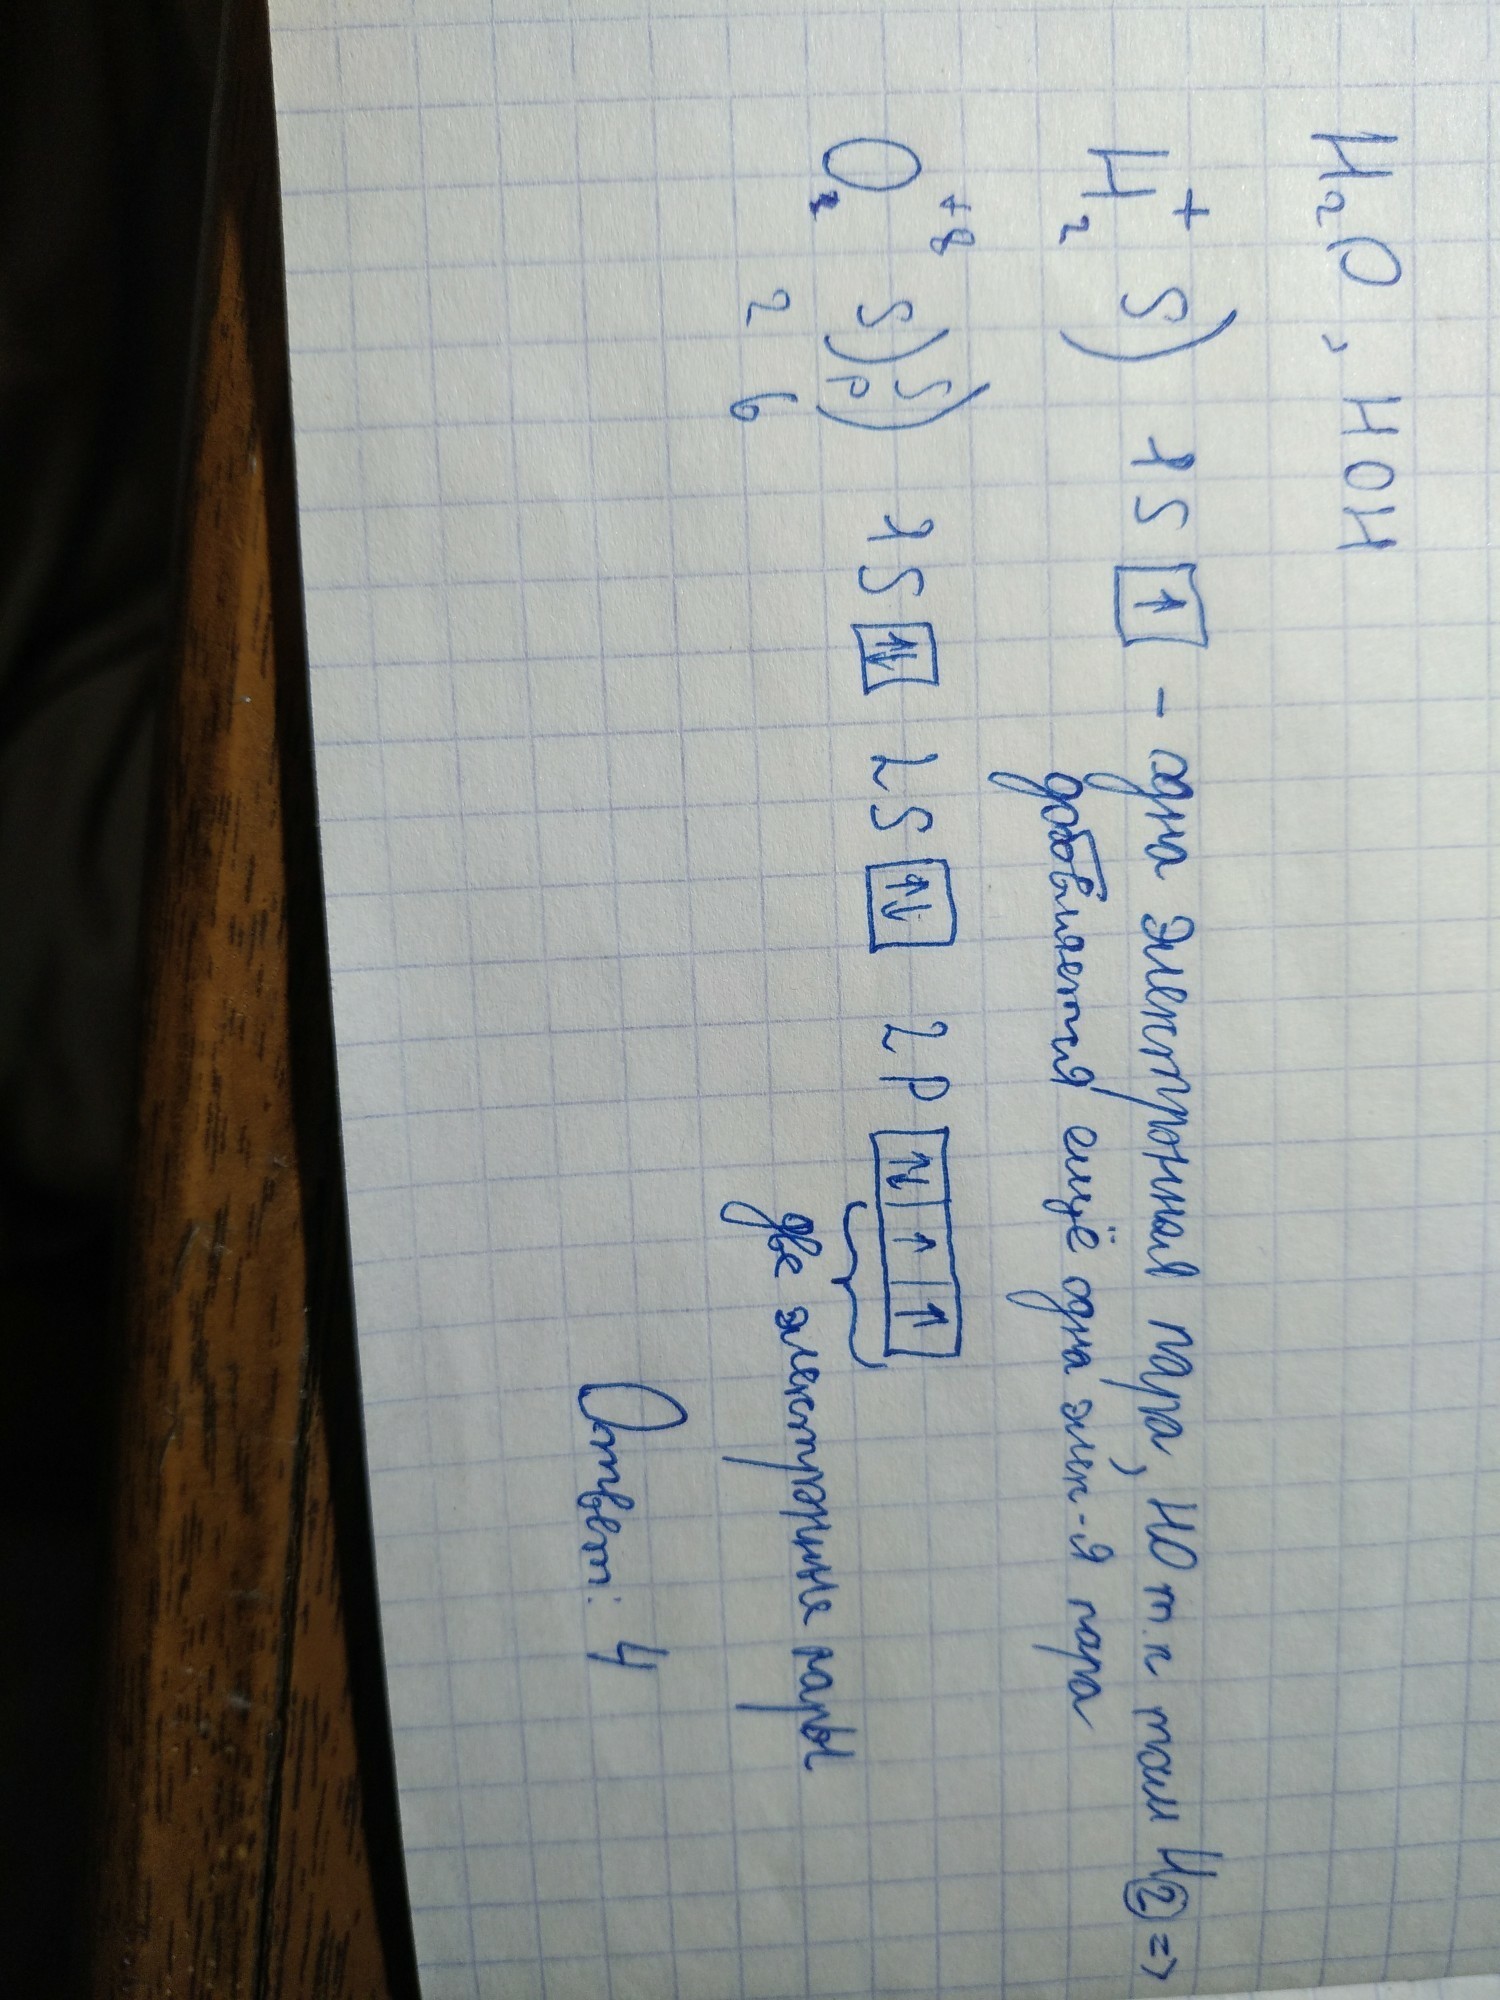 H₂O, HOH
H₂⁺ S) 1S ↑ - одна электронная пара, НО т.к там H② =>
добовляется ещё одна элек-я пара
O₂⁺⁸ S) S) 1S ↑↓ 2S ↑↓ 2P ↑↓ ↑ ↑
P)
2 6 две электронные пары
Ответ: 4